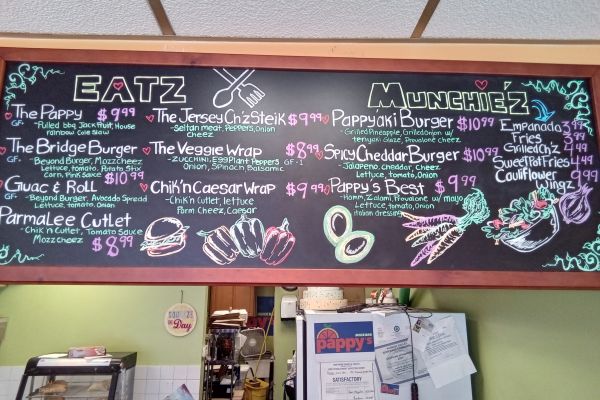 EATZ
The Pappy $9.99
GF- -Pulled bbq Jackfruit, House
rainbow Cole Slaw
The Bridge Burger
GF- -Beyond Burger, Mozzcheez
Lettuce, tomato, Potato Stix
Corn, Pink Sauce $10.99
Guac & Roll $10.99
GF- -Beyond Burger, Avocado Spread
Lettuce, tomato, Onion
ParmaLee Cutlet
-Chik'n Cutlet, Tomato Sauce
Mozzcheez $8.99
The Jersey Ch'z Steik $9.99
-Seitan meat, Peppers, Onion
Cheez
The Veggie Wrap $8.99
-Zucchini, Eggplant Peppers GF-1
Onion, Spinach Balsamic
Chik'n Caesar Wrap $9.99
-Chik'n Cutlet, lettuce
Parm Cheez, Caesar
MUNCHIE'Z
Pappyaki Burger $10.99
-Grilled Pineapple, Grilled Onion w/
teriyaki Glaze, Provolone cheez
Spicy Cheddar Burger $10.99
-Jalapeno, cheddar Cheez
Lettuce, Tomato
Pappy's Best $9.99
-Ham, Zalami, Provolone w/ mayo
Lettuce, tomato, Onion
italian dressing
Empanada 3.99
Fries 3.99
Grilled Ch'z 4.99
Sweet Pot Fries 4.99
Cauliflower
Wingz
SQUEEZE
the
Day
pappy's
SATISFACTORY